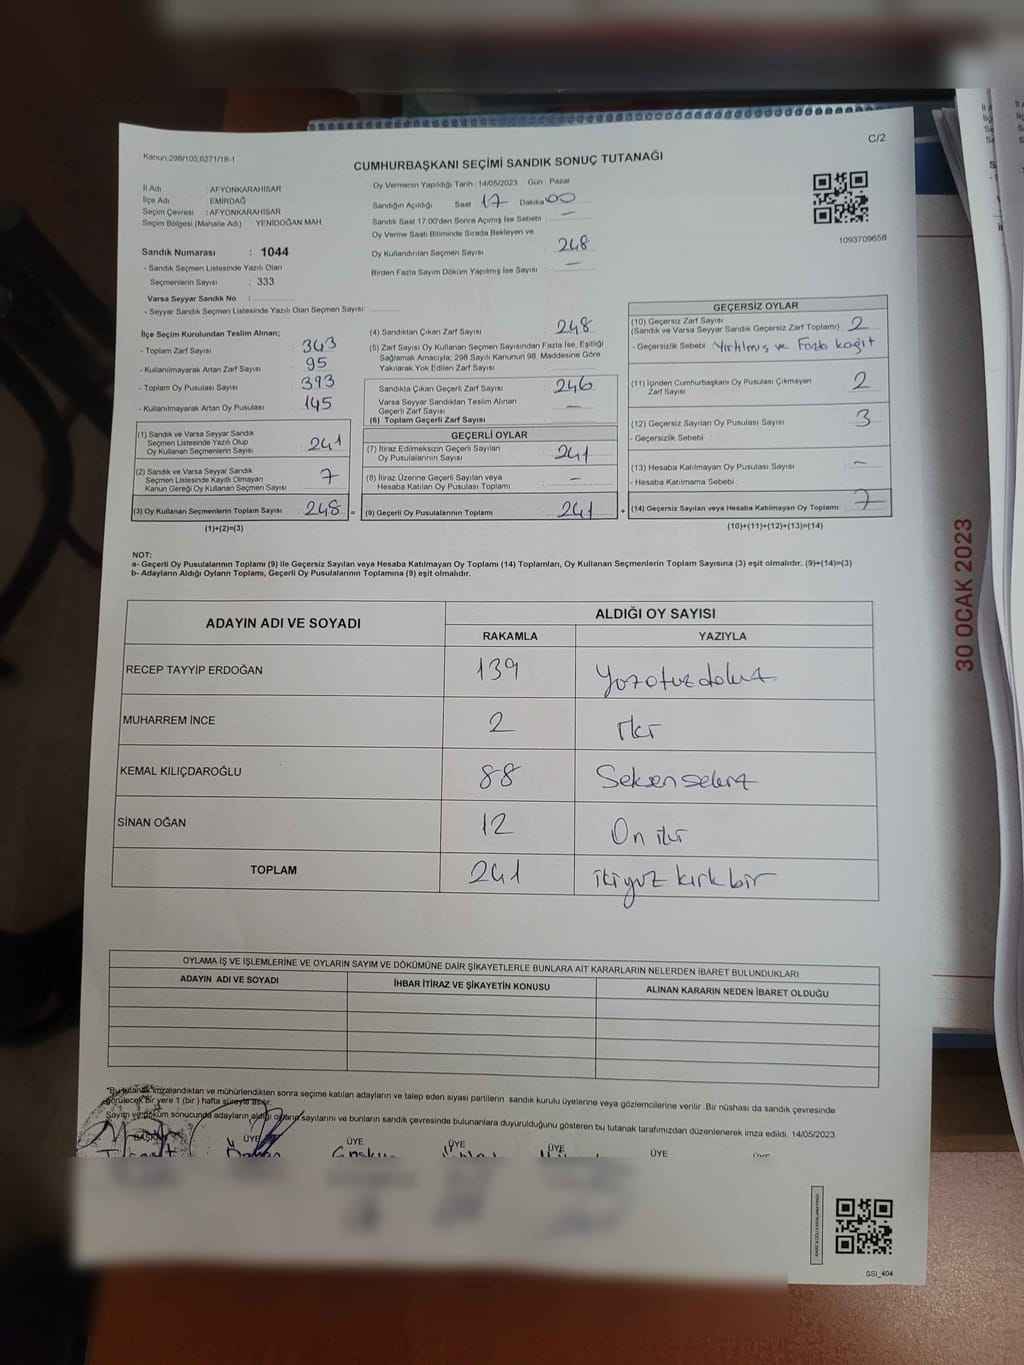 C/2
Kanun;298/105;6271/18-1
CUMHURBAŞKANI SEÇİMİ SANDIK SONUÇ TUTANAĞI
İl Adı : AFYONKARAHİSAR
İlçe Adı : EMİRDAĞ
Seçim Çevresi : AFYONKARAHİSAR
Seçim Bölgesi (Mahalle Adı) : YENİDOĞAN MAH.
Sandık Numarası : 1044
- Sandık Seçmen Listesinde Yazılı Olan
Seçmenlerin Sayısı : 333
Varsa Seyyar Sandık No :
- Seyyar Sandık Seçmen Listesinde Yazılı Olan Seçmen Sayısı:
Oy Vermenin Yapıldığı Tarih : 14/05/2023 Gün : Pazar
Sandığın Açıldığı Saat 17 Dakika 00
Sandık Saat 17:00'den Sonra Açılmış İse Sebebi : –
Oy Verme Saati Bitiminde Sırada Bekleyen ve
Oy Kullandırılan Seçmen Sayısı : 248
Birden Fazla Sayım Döküm Yapılmış İse Sayısı : –
1093709658
İlçe Seçim Kurulundan Teslim Alınan;
- Toplam Zarf Sayısı : 343
- Kullanılmayarak Artan Zarf Sayısı : 95
- Toplam Oy Pusulası Sayısı : 393
- Kullanılmayarak Artan Oy Pusulası : 145
(1) Sandık ve Varsa Seyyar Sandık
Seçmen Listesinde Yazılı Olup
Oy Kullanan Seçmenlerin Sayısı : 241
(2) Sandık ve Varsa Seyyar Sandık
Seçmen Listesinde Kayıtlı Olmayan
Kanun Gereği Oy Kullanan Seçmen Sayısı : 7
(3) Oy Kullanan Seçmenlerin Toplam Sayısı : 248 =
(1)+(2)=(3)
(4) Sandıktan Çıkan Zarf Sayısı : 248
(5) Zarf Sayısı Oy Kullanan Seçmen Sayısından Fazla İse, Eşitliği
Sağlamak Amacıyla, 298 Sayılı Kanunun 98. Maddesine Göre
Yakılarak Yok Edilen Zarf Sayısı :
Sandıkta Çıkan Geçerli Zarf Sayısı : 246
Varsa Seyyar Sandıktan Teslim Alınan
Geçerli Zarf Sayısı : –
(6) Toplam Geçerli Zarf Sayısı :
GEÇERLİ OYLAR
(7) İtiraz Edilmeksizin Geçerli Sayılan
Oy Pusulalarının Sayısı : 241
(8) İtiraz Üzerine Geçerli Sayılan veya
Hesaba Katılan Oy Pusulası Toplamı : –
(9) Geçerli Oy Pusulalarının Toplamı : 241 +
GEÇERSİZ OYLAR
(10) Geçersiz Zarf Sayısı
(Sandık ve Varsa Seyyar Sandık Geçersiz Zarf Toplamı) : 2
- Geçersizlik Sebebi : Yırtılmış ve Fazla kağıt
(11) İçinden Cumhurbaşkanı Oy Pusulası Çıkmayan
Zarf Sayısı : 2
(12) Geçersiz Sayılan Oy Pusulası Sayısı : 3
- Geçersizlik Sebebi :
(13) Hesaba Katılmayan Oy Pusulası Sayısı : –
- Hesaba Katılmama Sebebi :
(14) Geçersiz Sayılan veya Hesaba Katılmayan Oy Toplamı : 7
(10)+(11)+(12)+(13)=(14)
NOT:
a- Geçerli Oy Pusulalarının Toplamı (9) ile Geçersiz Sayılan veya Hesaba Katılmayan Oy Toplamı (14) Toplamları, Oy Kullanan Seçmenlerin Toplam Sayısına (3) eşit olmalıdır. (9)+(14)=(3)
b- Adayların Aldığı Oyların Toplamı, Geçerli Oy Pusulalarının Toplamına (9) eşit olmalıdır.
ADAYIN ADI VE SOYADI ALDIĞI OY SAYISI
RAKAMLA YAZIYLA
RECEP TAYYİP ERDOĞAN 139 Yüzotuzdokuz
MUHARREM İNCE 2 İki
KEMAL KILIÇDAROĞLU 88 Seksensekiz
SİNAN OĞAN 12 On iki
TOPLAM 241 ikiyüz kırkbir
30 OCAK 2023
OYLAMA İŞ VE İŞLEMLERİNE VE OYLARIN SAYIM VE DÖKÜMÜNE DAİR ŞİKAYETLERLE BUNLARA AİT KARARLARIN NELERDEN İBARET BULUNDUKLARI
ADAYIN ADI VE SOYADI İHBAR İTİRAZ VE ŞİKAYETİN KONUSU ALINAN KARARIN NEDEN İBARET OLDUĞU
"Bu tutanak imzalandıktan ve mühürlendikten sonra seçime katılan adayların ve talep eden siyasi partilerin sandık kurulu üyelerine veya gözlemcilerine verilir. Bir nüshası da sandık çevresinde
görülecek bir yere 1 (bir) hafta süreyle asılır.
Sayım ve döküm sonucunda adayların aldığı oyların sayılarını ve bunların sandık çevresinde bulunanlara duyurulduğunu gösteren bu tutanak tarafımızdan düzenlenerek imza edildi. 14/05/2023
BAŞKAN ÜYE ÜYE ÜYE ÜYE ÜYE ÜYE
SSI_404